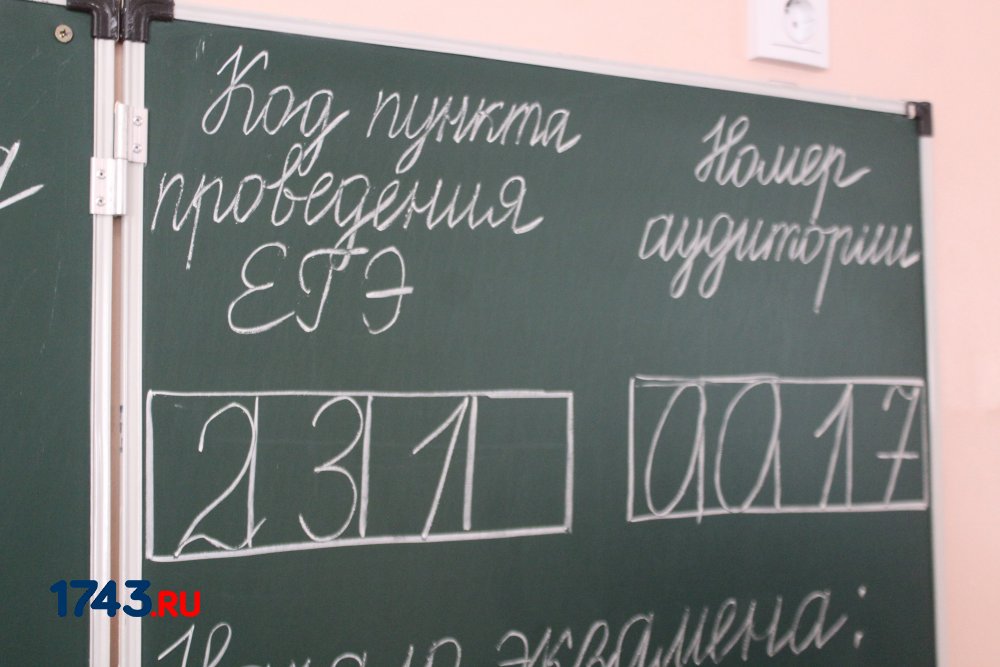 Код пункта
проведения
ЕГЭ
Номер
аудитории
231
0017
Начало экзамена:
1743.RU